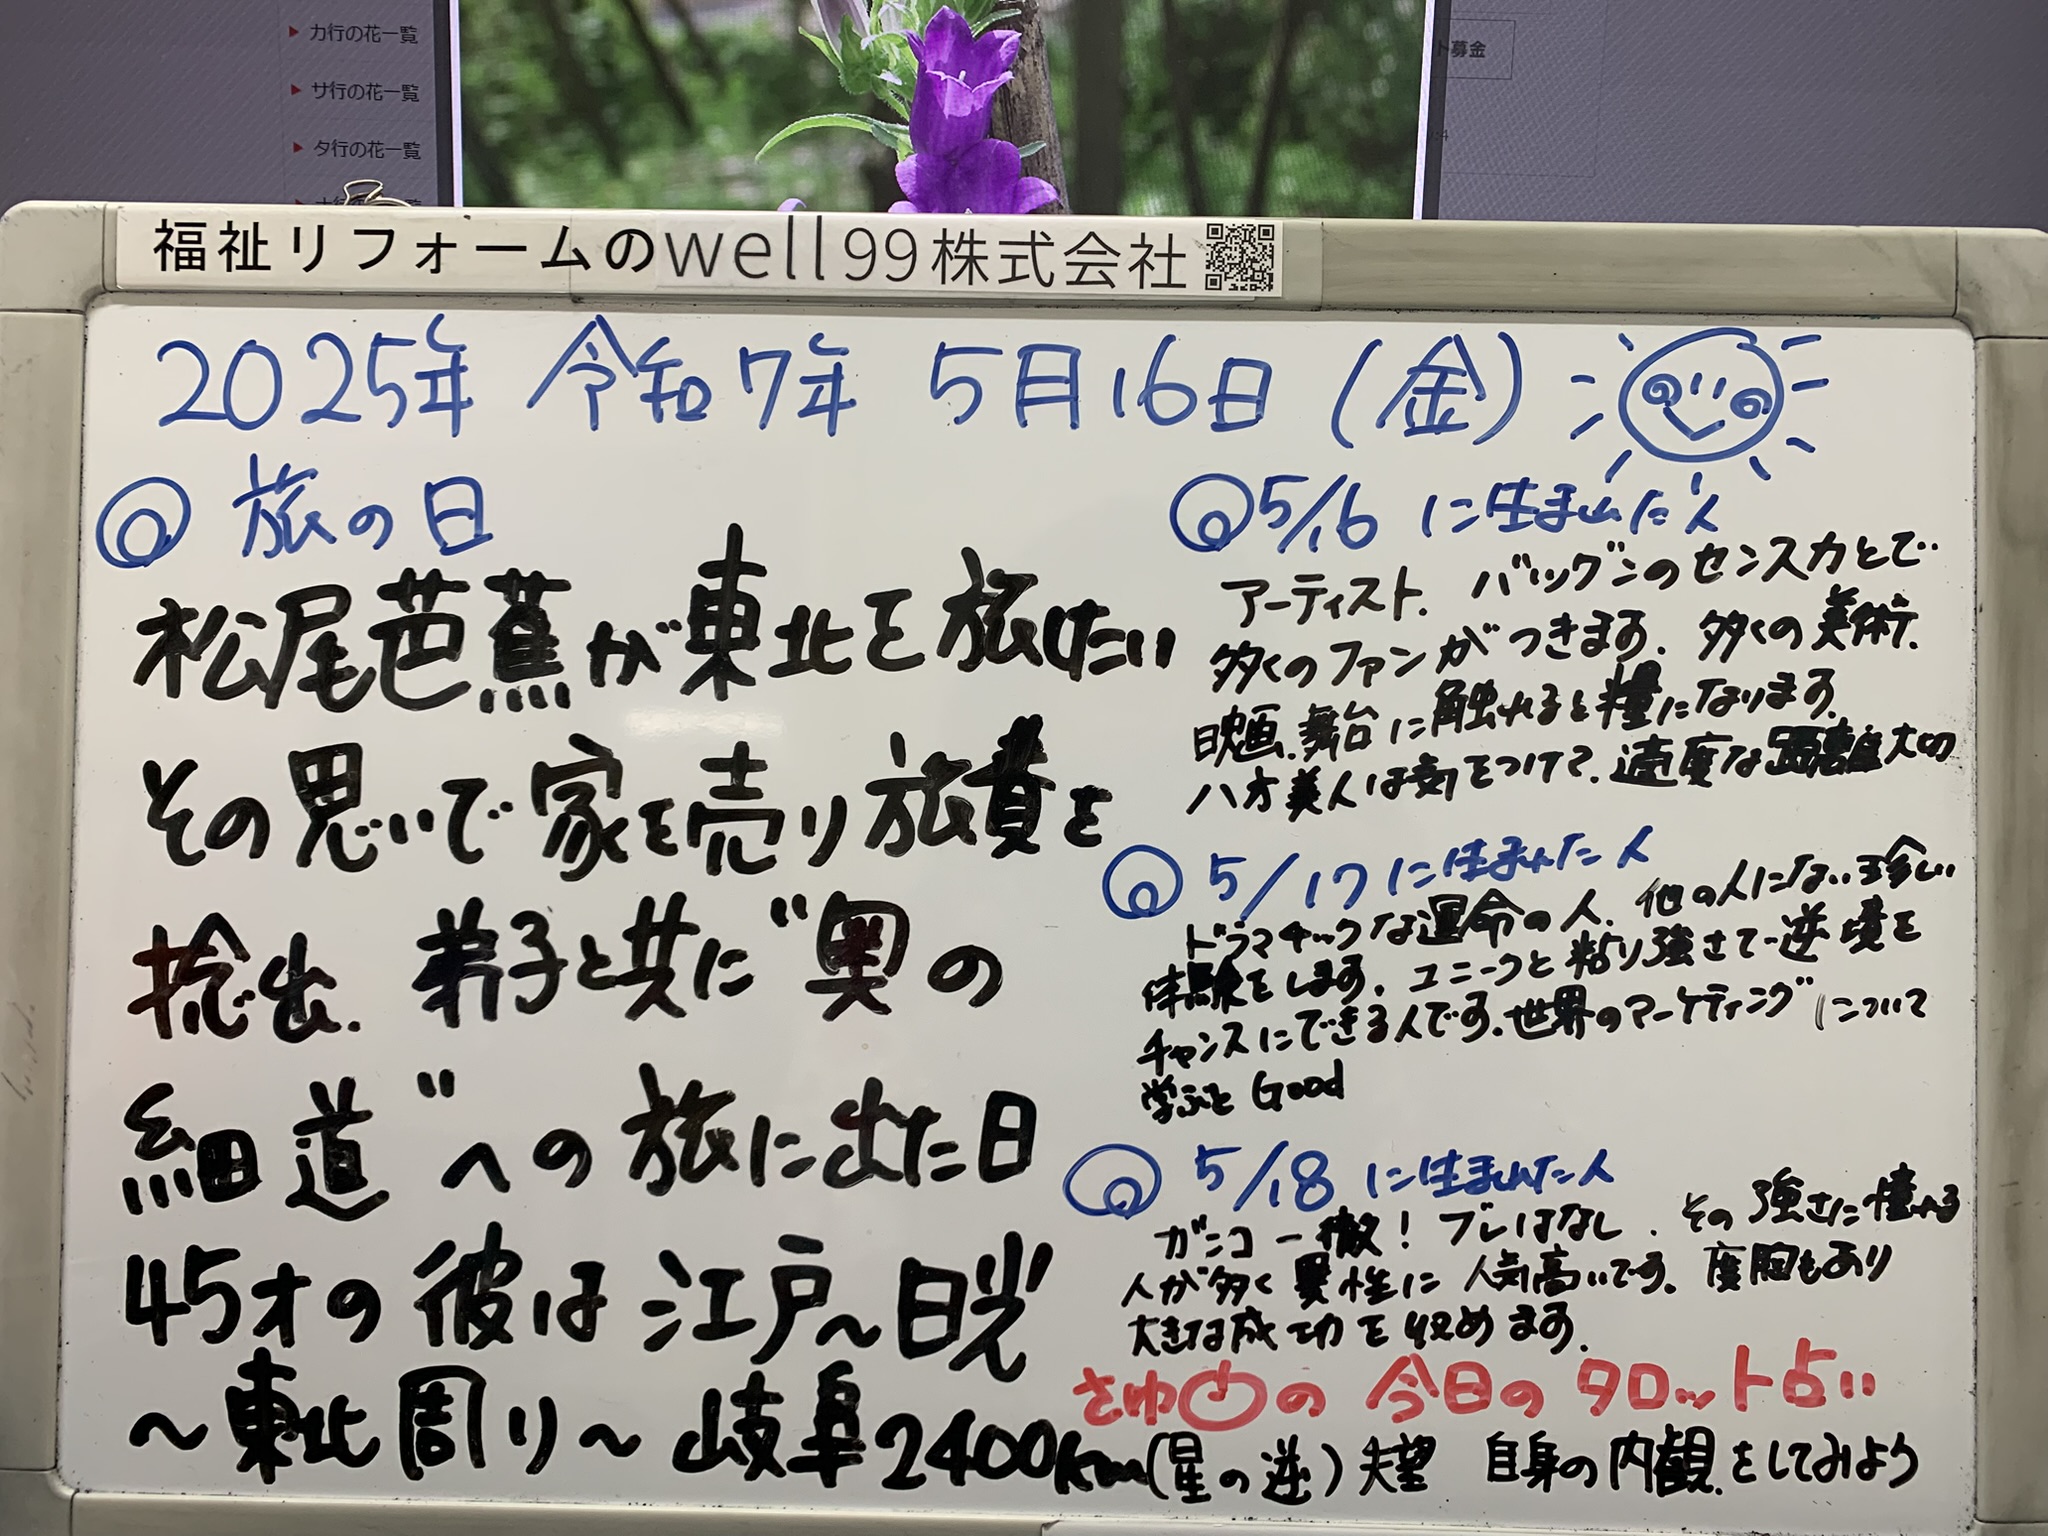 カ行の花一覧
サ行の花一覧
タ行の花一覧
ト募金
福祉リフォームのwell99株式会社
2025年 令和7年 5月16日(金)
旅の日
松尾芭蕉が東北を旅したい
その思いで家を売り旅費を
捻出. 弟子と共に"奥の
細道"への旅に出た日
45才の彼は江戸〜日光
〜東北周り〜岐阜2400km
5/16に生まれた人
アーティスト. バツグンのセンス力とで
多くのファンがつきます. 多くの美術.
映画.舞台に触れると糧になります.
八方美人は気をつけて.適度な距離大切
5/17に生まれた人
ドラマチックな運命の人. 他の人にない珍しい
体験をします. ユニークと粘り強さで逆境を
チャンスにできる人です.世界のマーケティングについて
学ぶと Good
5/18に生まれた人
ガンコ一徹! ブレはなし. その強さに憧れる
人が多く異性に人気高いです. 度胸もあり
大きな成功を収めます.
さゆ の 今日のタロット占い
(星の逆) 失望 自身の内観をしてみよう